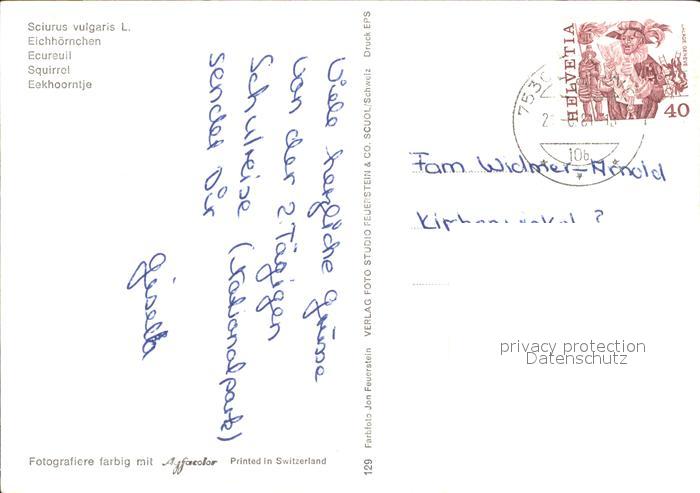 Sciurus vulgaris L.
Eichhörnchen
Ecureuil
Squirrel
Eekhoorntje
Viele herzliche Grüsse
von der 2.Tägigen
Schulreise (Nationalpark)
sendet Dir
Gisella
Fotografiere farbig mit Agfacolor Printed in Switzerland
129 Farbfoto Jon Feuerstein VERLAG FOTO STUDIO FEUERSTEIN & CO. SCUOL/Schweiz Druck EPS
HELVETIA
40
7530
10b
Fam. Widmer-Arnold
privacy protection
Datenschutz